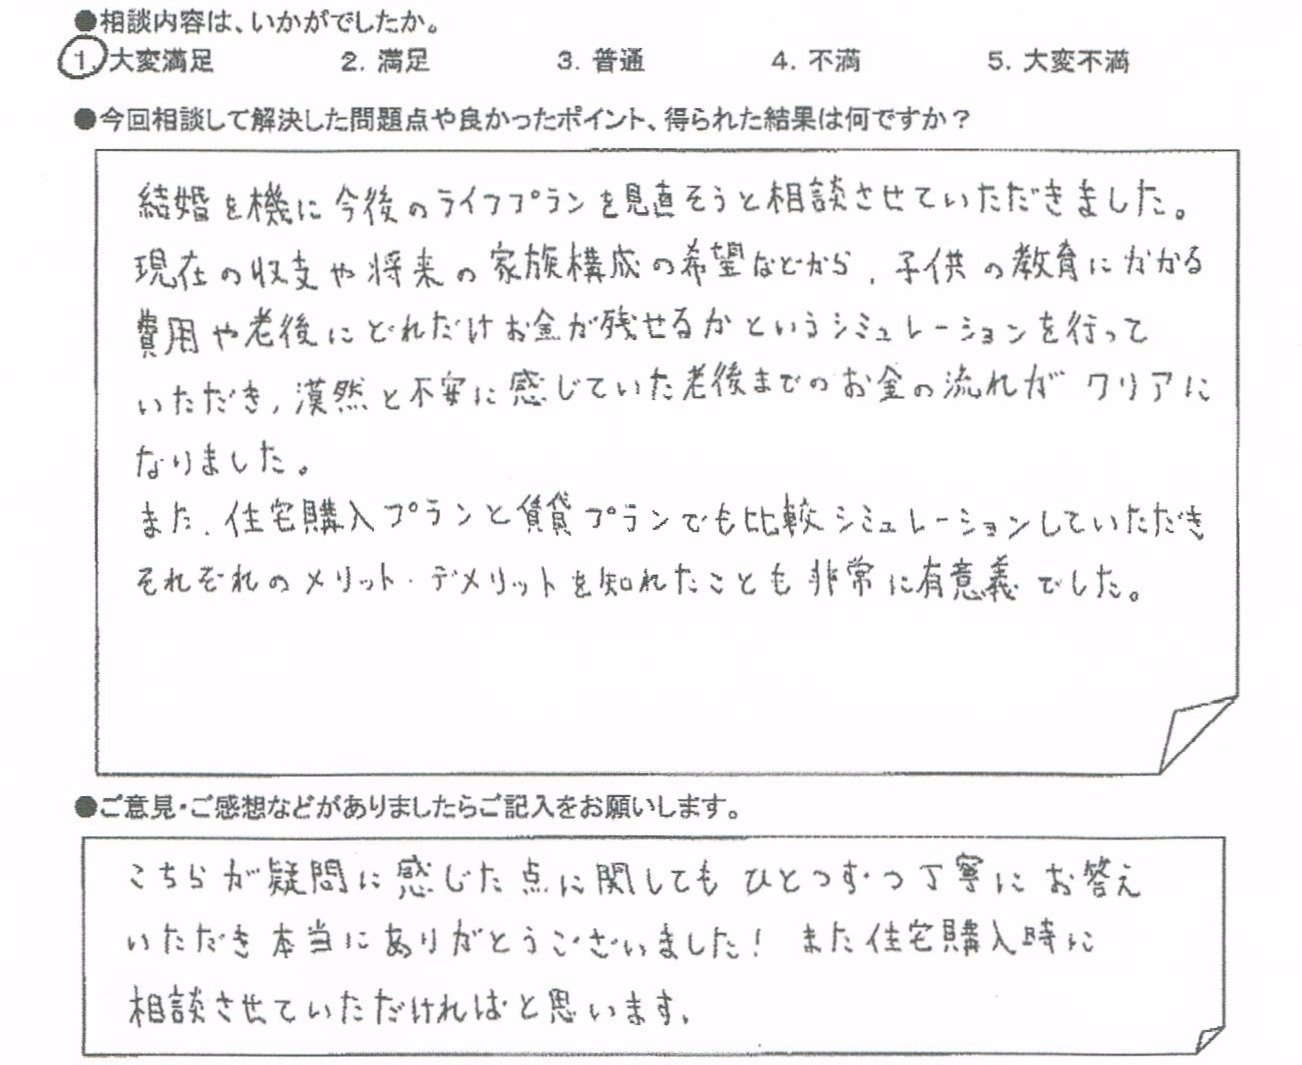 ●相談内容は、いかがでしたか。
1. 大変満足 2. 満足 3. 普通 4. 不満 5. 大変不満
●今回相談して解決した問題点や良かったポイント、得られた結果は何ですか？
結婚を機に今後のライフプランを見直そうと相談させていただきました。
現在の収支や将来の家族構成の希望などから、子供の教育にかかる
費用や老後にどれだけお金が残せるかというシミュレーションを行って
いただき、漠然と不安に感じていた老後までのお金の流れがクリアに
なりました。
また、住宅購入プランと賃貸プランでも比較シミュレーションしていただき
それぞれのメリット・デメリットを知れたことも非常に有意義でした。
●ご意見・ご感想などがありましたらご記入をお願いします。
こちらが疑問に感じた点に関してもひとつずつ丁寧にお答え
いただき本当にありがとうございました！ また住宅購入時に
相談させていただければと思います。